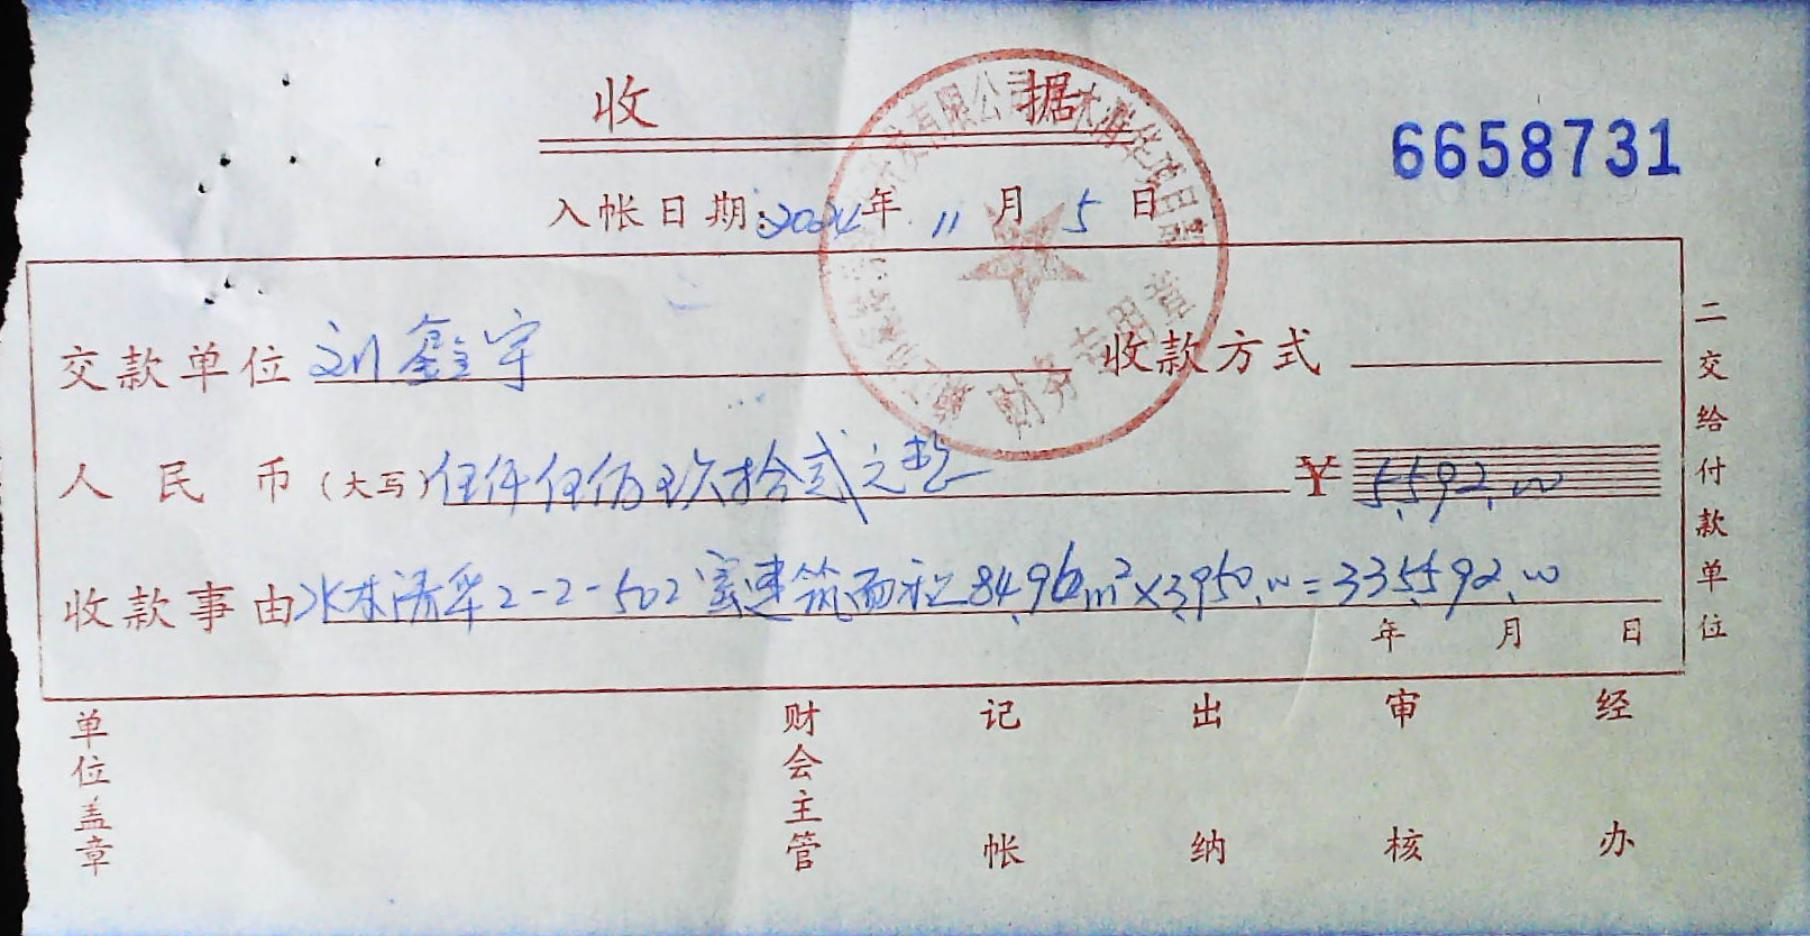 收 据
6658731
入帐日期:2024年11月5日
交款单位 刘鑫宇 收款方式
人民币(大写)伍仟伍佰玖拾贰元整 ¥ 5,592.00
收款事由 水木清华2-2-502室建筑面积84.96m²×3,950.00=335,592.00
年 月 日
二交给付款单位
单位盖章 财会主管 记帐 出纳 审核 经办
开发有限公司 水木清华项目部
财务专用章